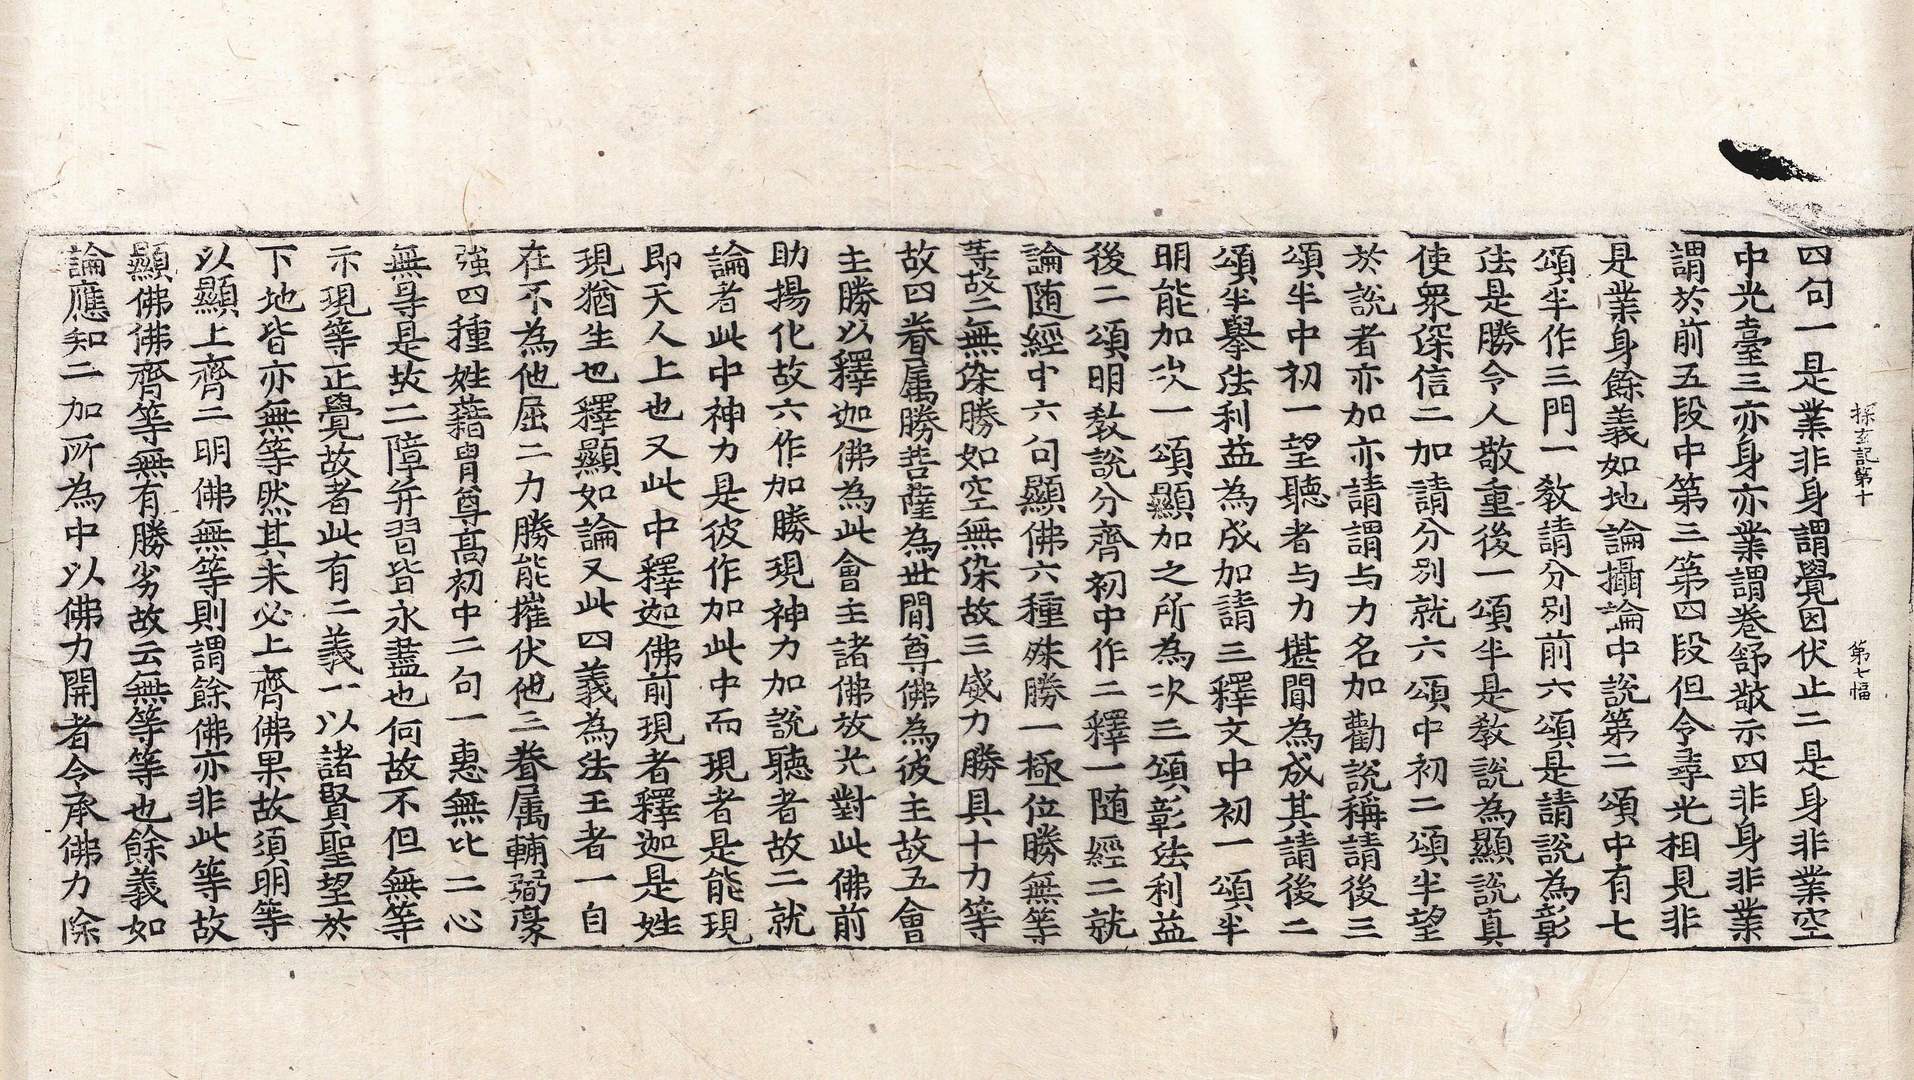 探玄記第十 第七幅
四句一是業非身謂覺因伏止二是身非業空
中光臺三亦身亦業謂卷舒敬示四非身非業
謂於前五段中第三第四段但令尋光相見非
是業身餘義如地論攝論中說第二頌中有七
頌半作三門一教請分別前六頌是請說為彰
法是勝令人敬重後一頌半是教說為顯說真
使衆深信二加請分別就六頌中初二頌半望
於說者亦加亦請謂与力名加勸說稱請後三
頌半中初一望聽者与力堪聞為成其請後二
頌半擧法利益為成加請三釋文中初一頌半
明能加次一頌顯加之所為次三頌彰法利益
後二頌明教說分齊初中作二釋一随經二就
論随經中六句顯佛六種殊勝一極位勝無等
等故二無染勝如空無染故三威力勝具十力等
故四眷属勝菩薩為世間尊佛為彼主故五會
主勝以釋迦佛為此會主諸佛放光對此佛前
助揚化故六作加勝現神力加說聽者故二就
論者此中神力是彼作加此中而現者是能現
即天人上也又此中釋迦佛前現者釋迦是姓
現猶生也釋顯如論又此四義為法王者一自
在不為他屈二力勝能摧伏他三眷属輔弼豪
強四種姓藉胄尊高初中二句一惠無比二心
無㝵是故二障并習皆永盡也何故不但無等
示現等正覺故者此有二義一以諸賢聖望於
下地皆亦無等然其未必上齊佛果故須明等
以顯上齊二明佛無等則謂餘佛亦非此等故
顯佛佛齊等無有勝劣故云無等等也餘義如
論應知二加所為中以佛力開者令承佛力除